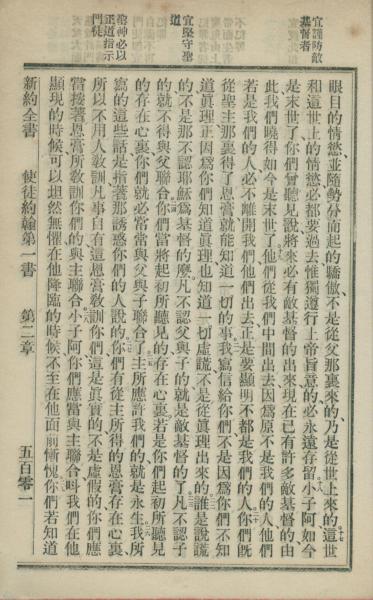 宜謹防敵
基督者
宜堅守聖
道
聖神必以
正道指示
門徒
眼目的情慾、並隨勢分而起的驕傲、不是從父那裏來的、乃是從世上來的、這世
和這世上的情慾必都要過去、惟獨遵行上帝旨意的、必永遠存留、小子阿、如今
是末世了、你們曾聽見說將來必有敵基督的出來、現在已有許多敵基督的、由
此我們曉得如今是末世了、他們從我們中間出去、因爲原不是我們的人、他們
若是我們的人、必不離開我們、他們出去、正是要顯明不都是我們的人、你們旣
從聖主那裏得了恩膏、就能知道一切的事、我寫信給你們、不是因爲你們不知
道眞理、正因爲你們知道眞理、也知道一切虛謊不是從眞理出來的、誰是說謊
的、不是那不認耶穌爲基督的麼、凡不認父與子的、就是敵基督的了、凡不認子
的、就不得與父聯合、你們當將起初所聽見的存在心裏、若是你們起初所聽見
的存在心裏、你們就必常常與父與子聯合了、主所應許我們的、就是永生、我所
寫的這些話、是指著那誘惑你們的人說的、你們有從主所得的恩膏存在心裏、
所以不用人敎訓、凡事自有這恩膏敎訓你們、這是眞實的、不是虛假的、你們應
當按著恩膏所敎訓你們的、與主聯合、小子阿、你們應當與主聯合、呌我們在他
顯現的時候、可以坦然無懼、在他降臨的時候、不至在他面前慚愧、你們若知道
新約全書 使徒約翰第一書 第二章 五百零一